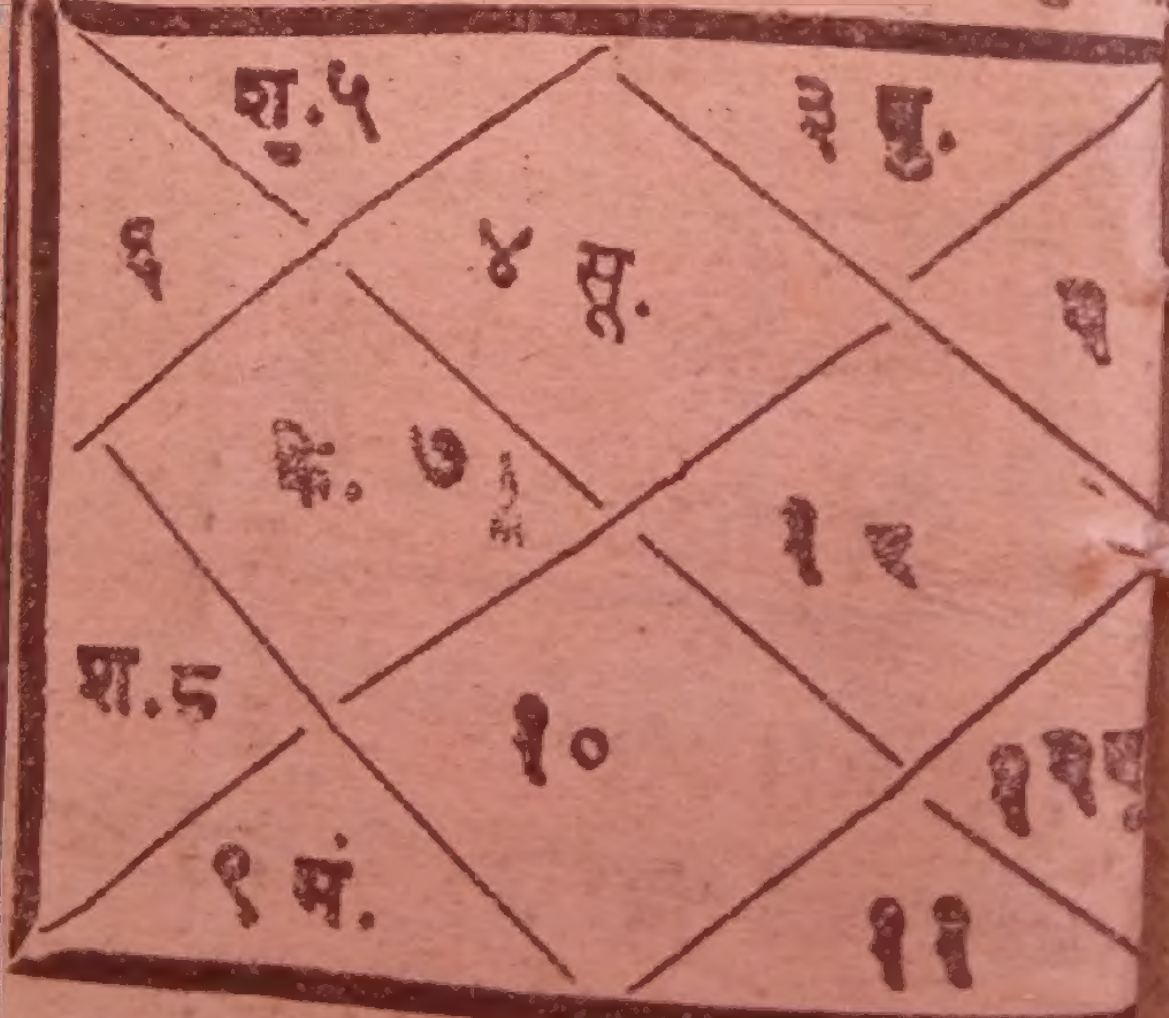 शु.५
३ बु.
६
४ सू.
के. ७
१
श.८
१०
९ मं.
११